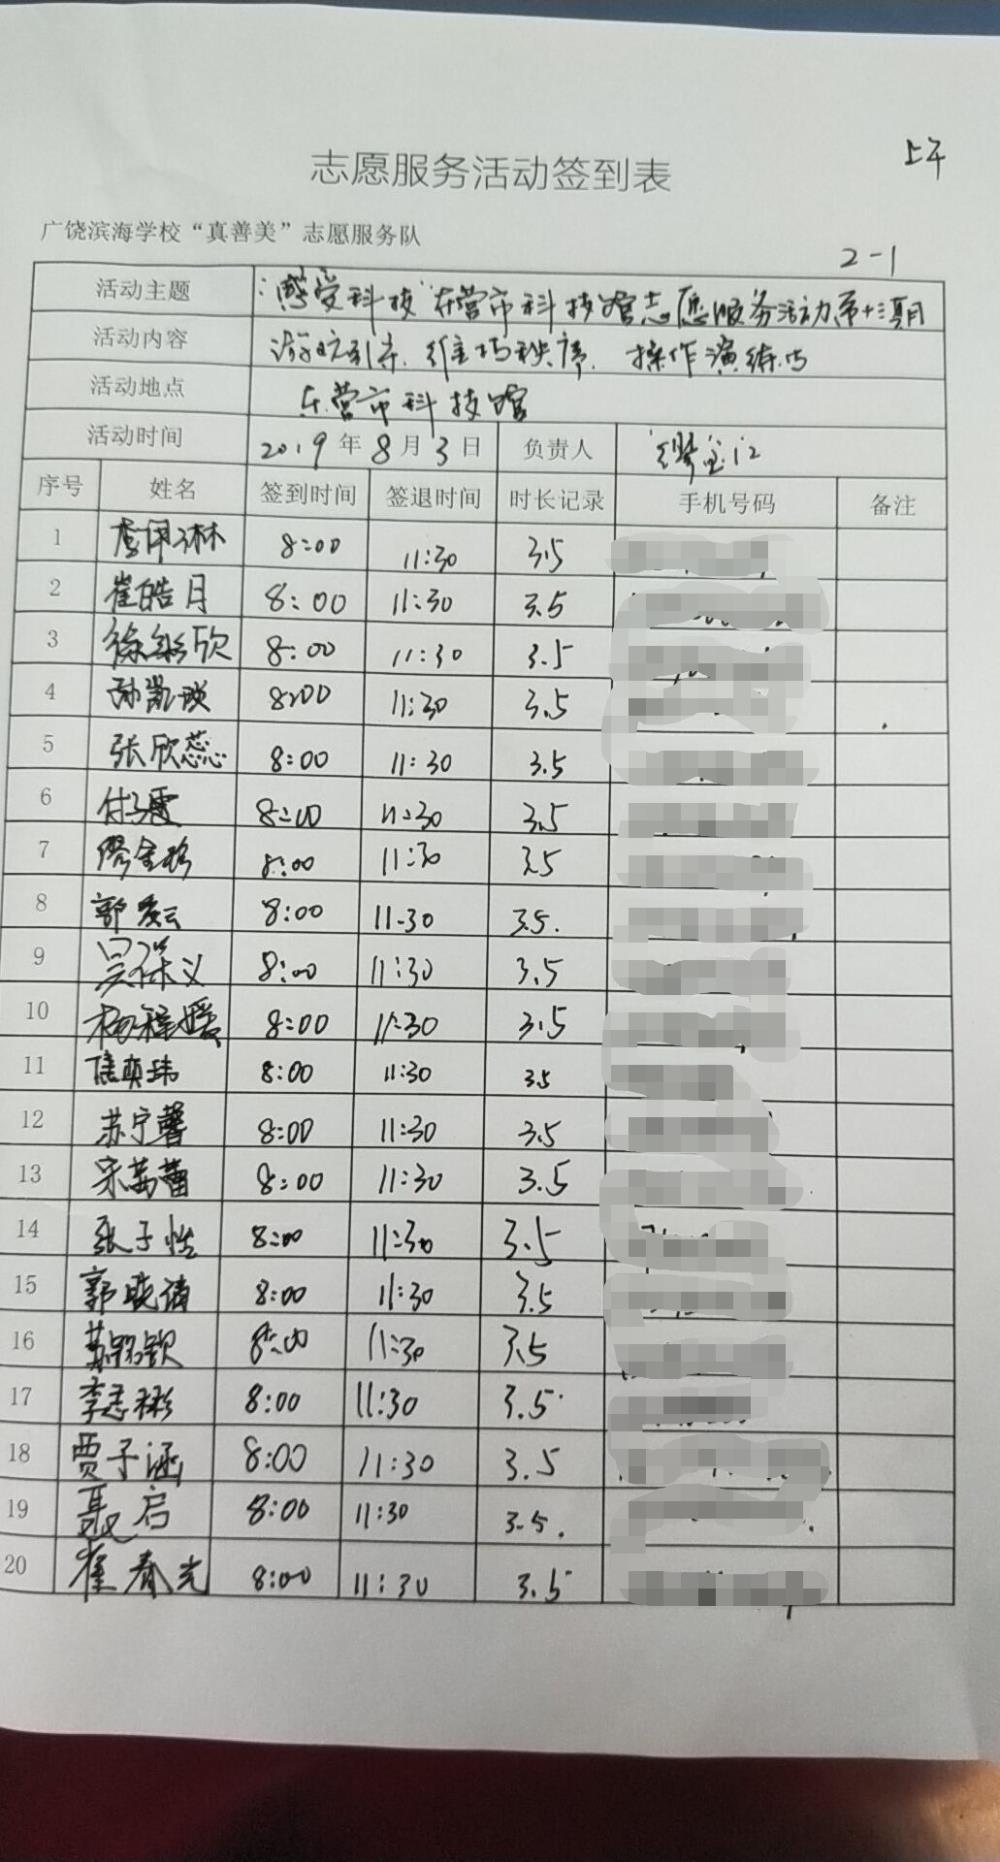 上午
志愿服务活动签到表
广饶滨海学校“真善美”志愿服务队
2-1
活动主题 “感受科技”东营市科技馆志愿服务活动第十三期
活动内容 维持秩序、操作演练
活动地点 东营市科技馆
活动时间 2019年8月3日 负责人
序号 姓名 签到时间 签退时间 时长记录 手机号码 备注
1 8:00 11:30 3.5
2 崔皓月 8:00 11:30 3.5
3 徐彩欣 8:00 11:30 3.5
4 孙凯琰 8:00 11:30 3.5
5 张欣蕊 8:00 11:30 3.5
6 付子雯 8:00 11:30 3.5
7 8:00 11:30 3.5
8 郭爱云 8:00 11:30 3.5.
9 吴保义 8:00 11:30 3.5
10 杨梓媛 8:00 11:30 3.5
11 8:00 11:30 3.5
12 苏宁馨 8:00 11:30 3.5
13 宋茜蕾 8:00 11:30 3.5
14 张子性 8:00 11:30 3.5
15 郭晓倩 8:00 11:30 3.5
16 8:00 11:30 3.5
17 李志彬 8:00 11:30 3.5
18 贾子涵 8:00 11:30 3.5
19 聂启 8:00 11:30 3.5.
20 崔春光 8:00 11:30 3.5